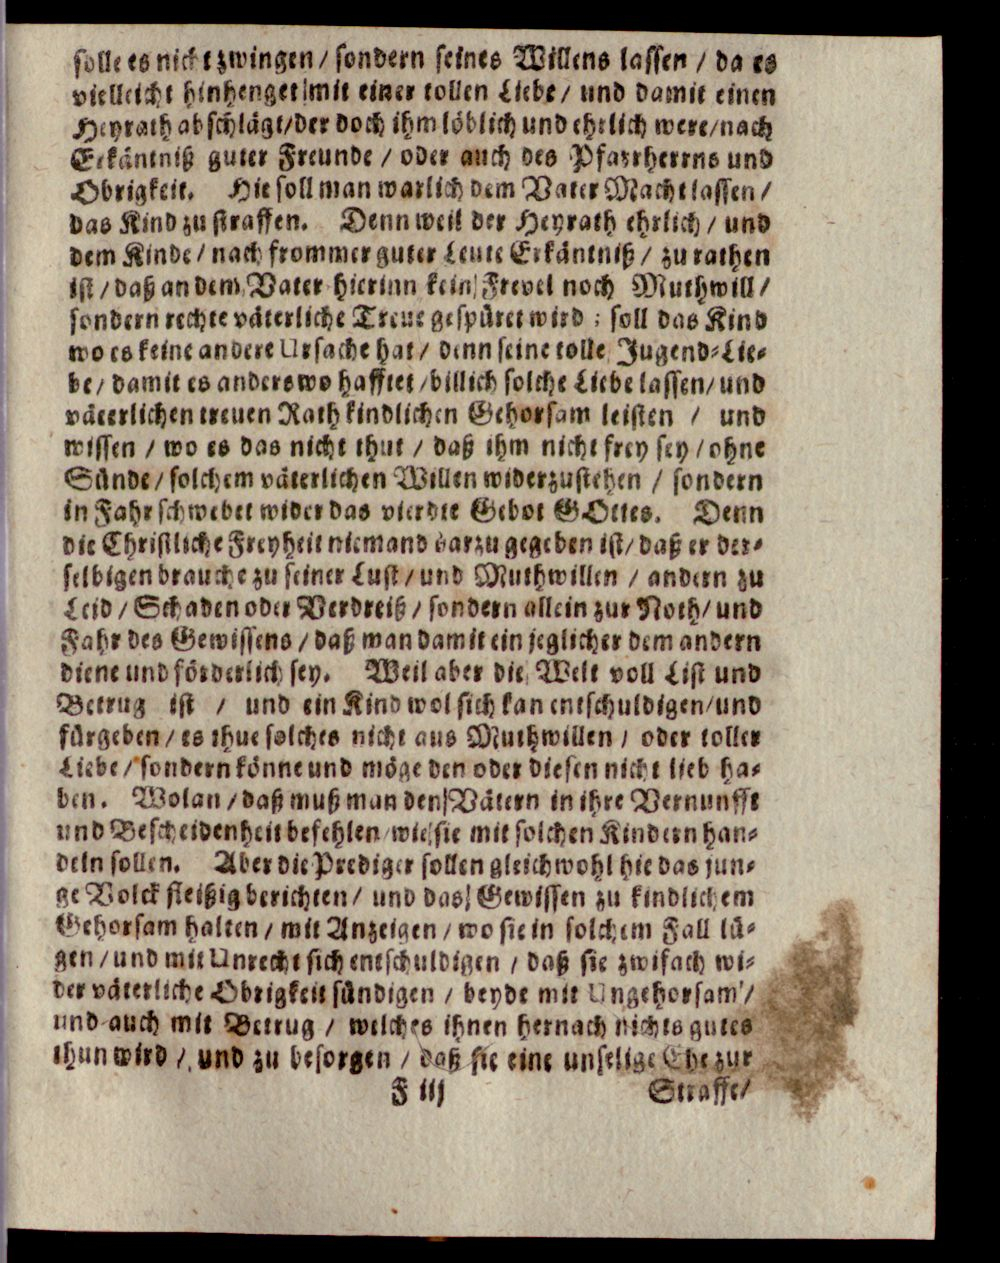 solle es nicht zwingen / sondern seines Willens lassen / da es
vielleicht hinhenget mit einer tollen Liebe / und damit einen
Heyrath abschlägt / der doch ihm löblich und ehrlich were / nach
Erkäntniß guter Freunde / oder auch des Pfarrherrns und
Obrigkeit. Hie soll man warlich dem Vater Macht lassen /
das Kind zu straffen. Denn weil der Heyrath ehrlich / und
dem Kinde / nach frommer guter Leute Erkäntniß / zu rathen
ist / daß an dem Vater hierinn kein Frevel noch Muthwill /
sondern rechte väterliche Treue gespüret wird ; soll das Kind
wo es keine andere Ursache hat / denn seine tolle Jugend-Lie-
be / damit es anderswo hafftet / billich solche Liebe lassen / und
väterlichen treuen Rath kindlichen Gehorsam leisten / und
wissen / wo es das nicht thut / daß ihm nicht frey sey / ohne
Sünde / solchem väterlichen Willen widerzustehen / sondern
in Fahr schwebet wider das vierdte Gebot GOttes. Denn
die Christliche Freyheit niemand darzu gegeben ist / daß er der-
selbigen brauche zu seiner Lust / und Muthwillen / andern zu
Leid / Schaden oder Verdreiß / sondern allein zur Noth / und
Fahr des Gewissens / daß man damit ein jeglicher dem andern
diene und förderlich sey. Weil aber die Welt voll List und
Betrug ist / und ein Kind wol sich kan entschuldigen / und
fürgeben / es thue solches nicht aus Muthwillen / oder toller
Liebe / sondern könne und möge den oder diesen nicht lieb ha-
ben. Wolan / daß muß man den Vätern in ihre Vernunfft
und Bescheidenheit befehlen / wie sie mit solchen Kindern han-
deln sollen. Aber die Prediger sollen gleichwohl hie das jun-
ge Volck fleißig berichten / und das Gewissen zu kindlichem
Gehorsam halten / mit Anzeigen / wo sie in solchem Fall lü-
gen / und mit Unrecht sich entschuldigen / daß sie zwifach wi-
der väterliche Obrigkeit sündigen / beyde mit Ungehorsam /
und auch mit Betrug / welches ihnen hernach nichts gutes
thun wird / und zu besorgen / daß sie eine unselige Ehe zur
F iij Straffe /